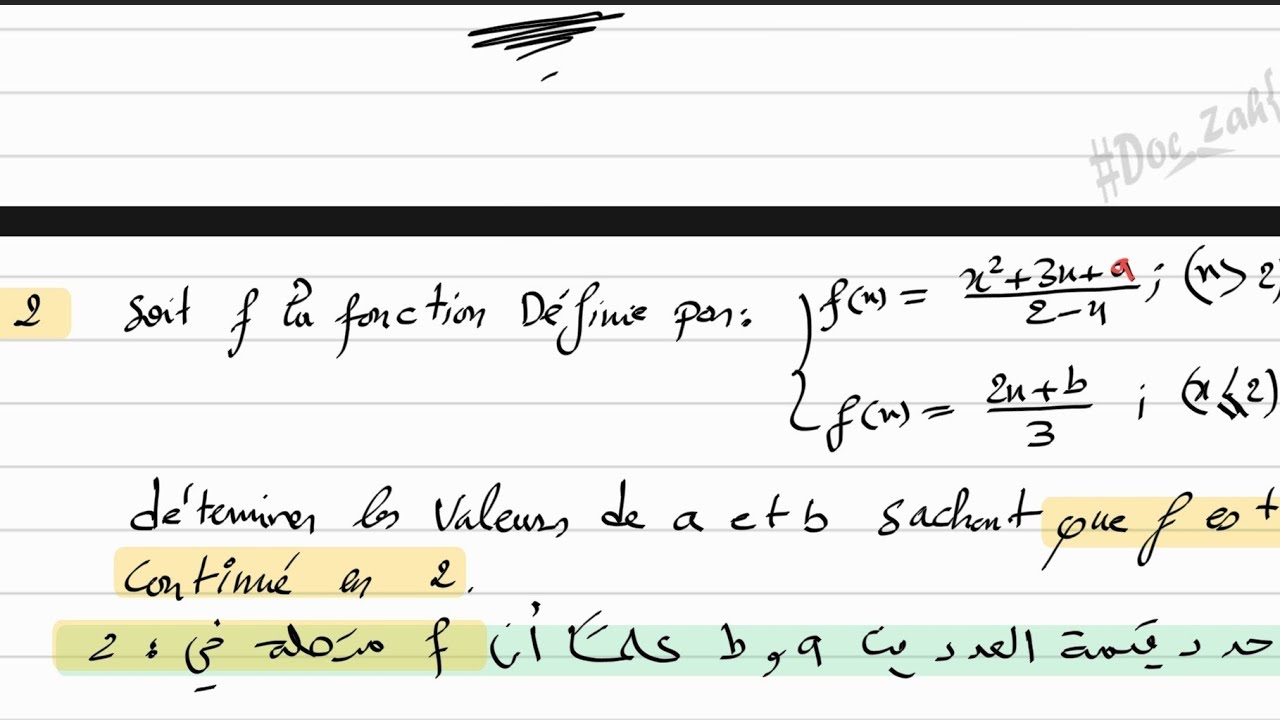 #Doc_Zah
2 Soit f la fonction Définie par: { f(x) = (x²+3x+a)/(2-x) ; (x>2)
f(x) = (2x+b)/3 ; (x≤2)
détermines les Valeurs de a et b sachant que f est
Continué en 2.
حدد قيمة العددين a و b علمًا أن f متصلة في : 2